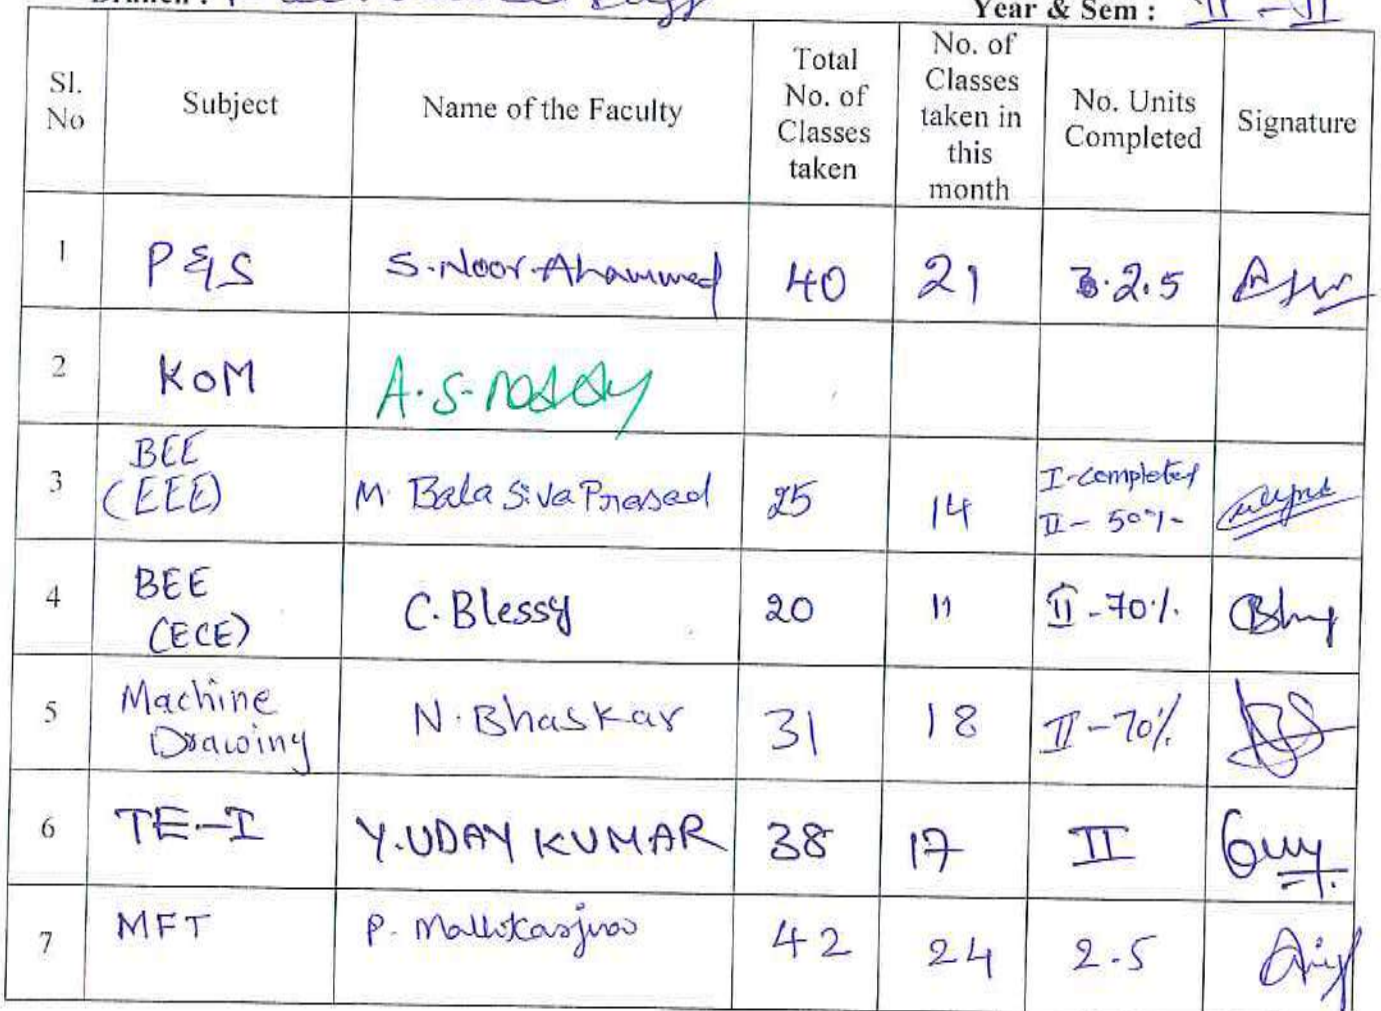 Year & Sem : II - II
Sl. No | Subject | Name of the Faculty | Total No. of Classes taken | No. of Classes taken in this month | No. Units Completed | Signature
1 | P&S | S. Noor Ahammed | 40 | 21 | 2.5
2 | KOM | A. S. reddy
3 | BEE (EEE) | M. Bala Siva Prasad | 25 | 14 | I - completed II - 50%
4 | BEE (ECE) | C. Blessy | 20 | 11 | II - 70%
5 | Machine Drawing | N. Bhaskar | 31 | 18 | II - 70%
6 | TE-I | Y. UDAY KUMAR | 38 | 17 | II
7 | MFT | P. | 42 | 24 | 2.5